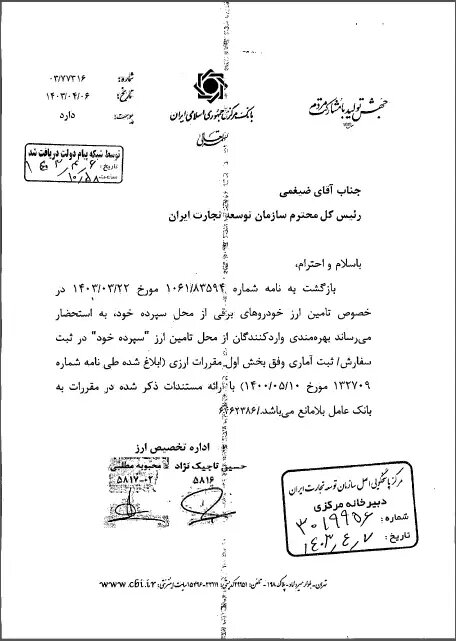 شماره: ۰۳/۷۷۳۱۶
تاریخ: ۱۴۰۳/۰۴/۰۶
پیوست: دارد
بانک مرکزی جمهوری اسلامی ایران
بسمه تعالی
جهش تولید با مشارکت مردم
توسط شبکه پیام دولت دریافت شد
ساعت ۱۰/۵۸
جناب آقای ضیغمی
رئیس کل محترم سازمان توسعه تجارت ایران
باسلام و احترام،
بازگشت به نامه شماره ۱۰۶۱/۸۳۵۹۴ مورخ ۱۴۰۳/۰۳/۲۲ در
خصوص تامین ارز خودروهای برقی از محل سپرده خود، به استحضار
می‌رساند بهره‌مندی واردکنندگان از محل تامین ارز "سپرده خود" در ثبت
سفارش/ ثبت آماری وفق بخش اول مقررات ارزی (ابلاغ شده طی نامه شماره
۱۳۲۷۰۹ مورخ ۱۴۰۰/۰۵/۱۰) با ارائه مستندات ذکر شده در مقررات به
بانک عامل بلامانع می‌باشد./۶۶۶۲۳۸۶
اداره تخصیص ارز
حسین تاجیک نژاد محبوبه مطلبی
۵۸۱۶ ۵۸۱۷-۰۲
مرکز پاسخگویی اصل سازمان توسعه تجارت ایران
دبیرخانه مرکزی
شماره: ۳۰۱۹۹۵۶
تاریخ: ۱۴۰۳/۴/۷
تهران- بلوار میرداماد- پلاک ۱۹۸- تلفن: ۲۹۹۵۱ سایت اینترنتی: www.cbi.ir